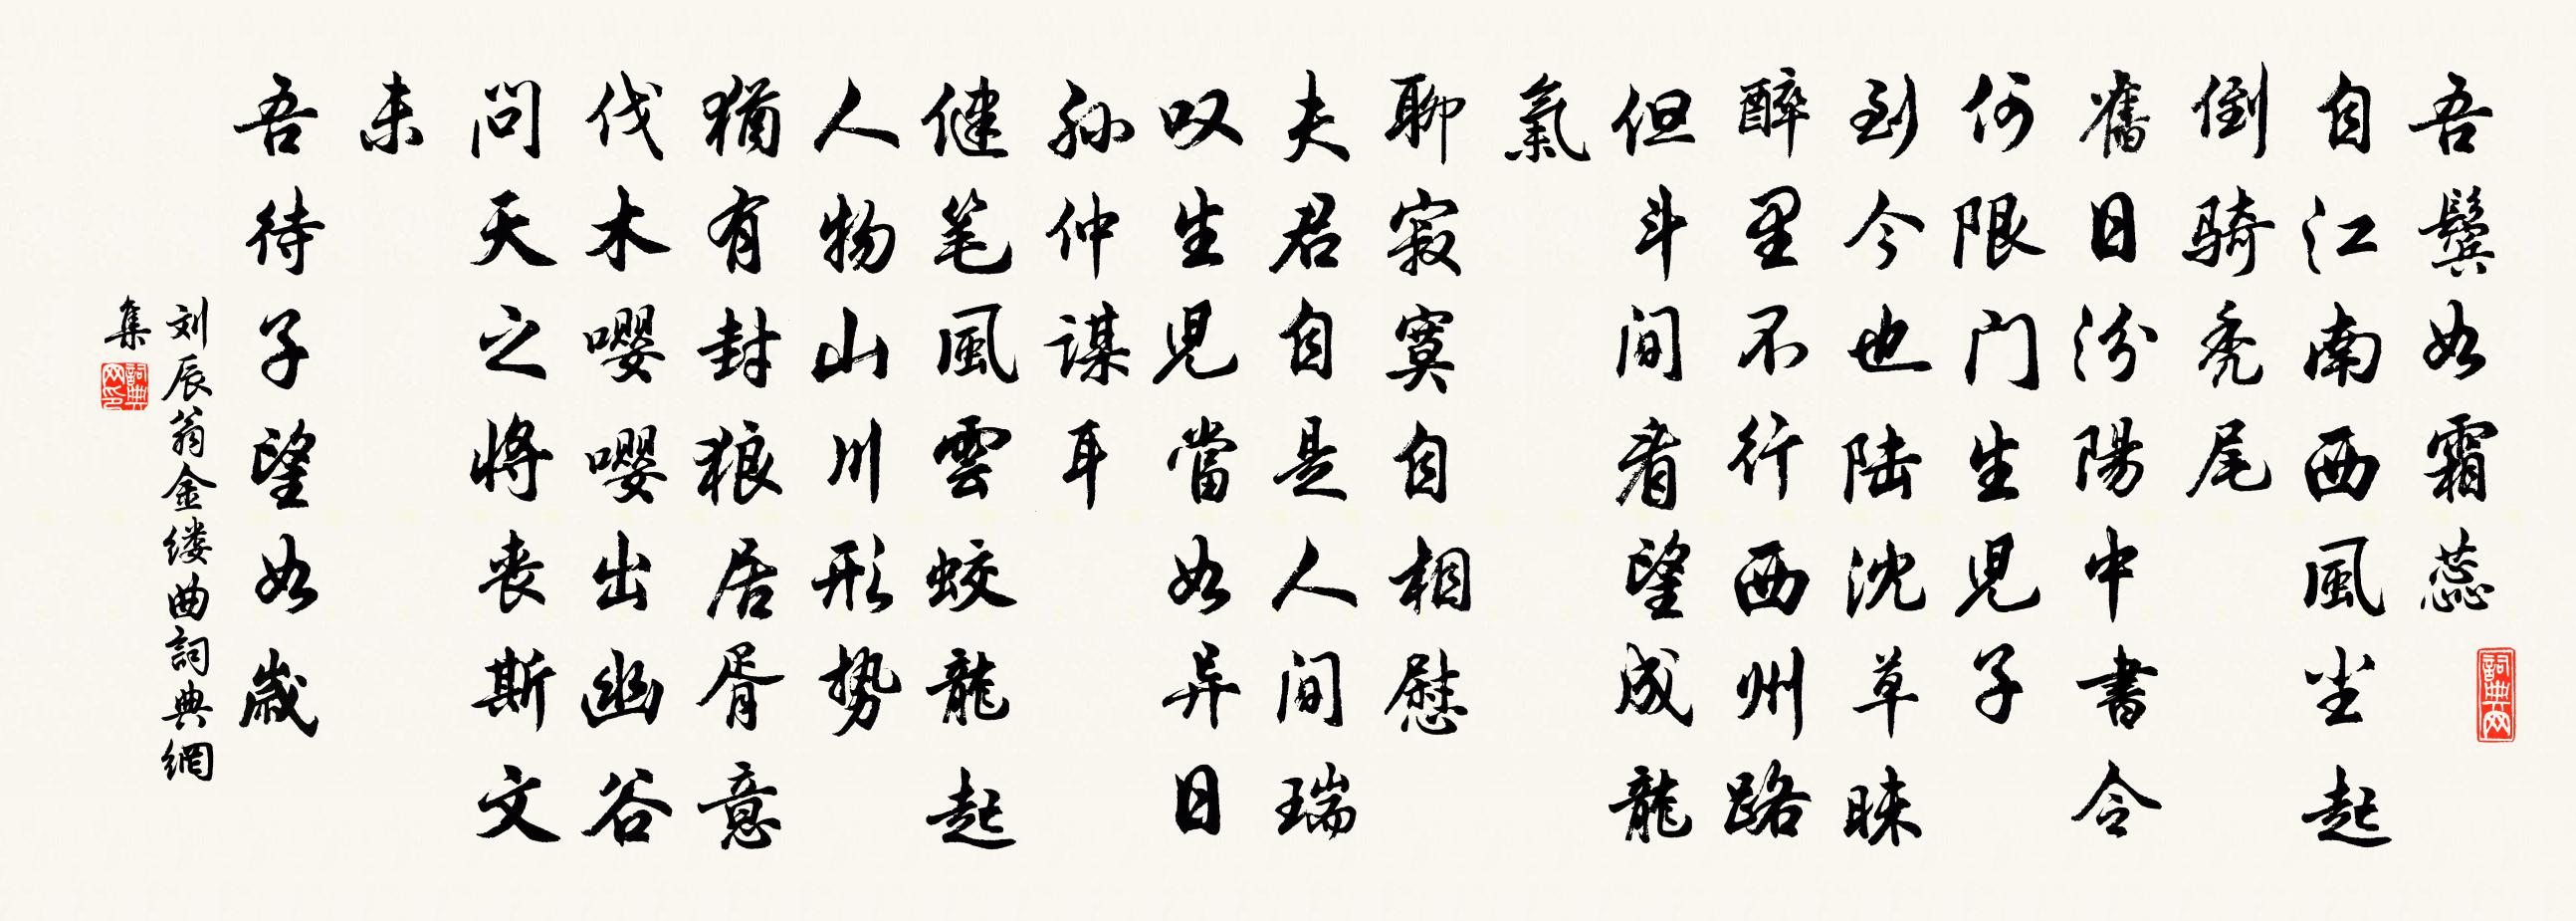 吾鬓如霜蕊
自江南西風尘起
倒骑秃尾
舊日汾陽中書令
何限门生児子
到今也陆沈草昧
醉里不行西州路
但斗间看望成龍
氣
聊寂寞自相慰
夫君自是人间瑞
叹生児當如异日
孙仲謀耳
健笔風雲蛟龍起
人物山川形势
猶有封狼居胥意
伐木嘤嘤出幽谷
问天之将丧斯文
未
吾待子望如歲
刘辰翁金缕曲詞典網
集
詞典网
詞典网印